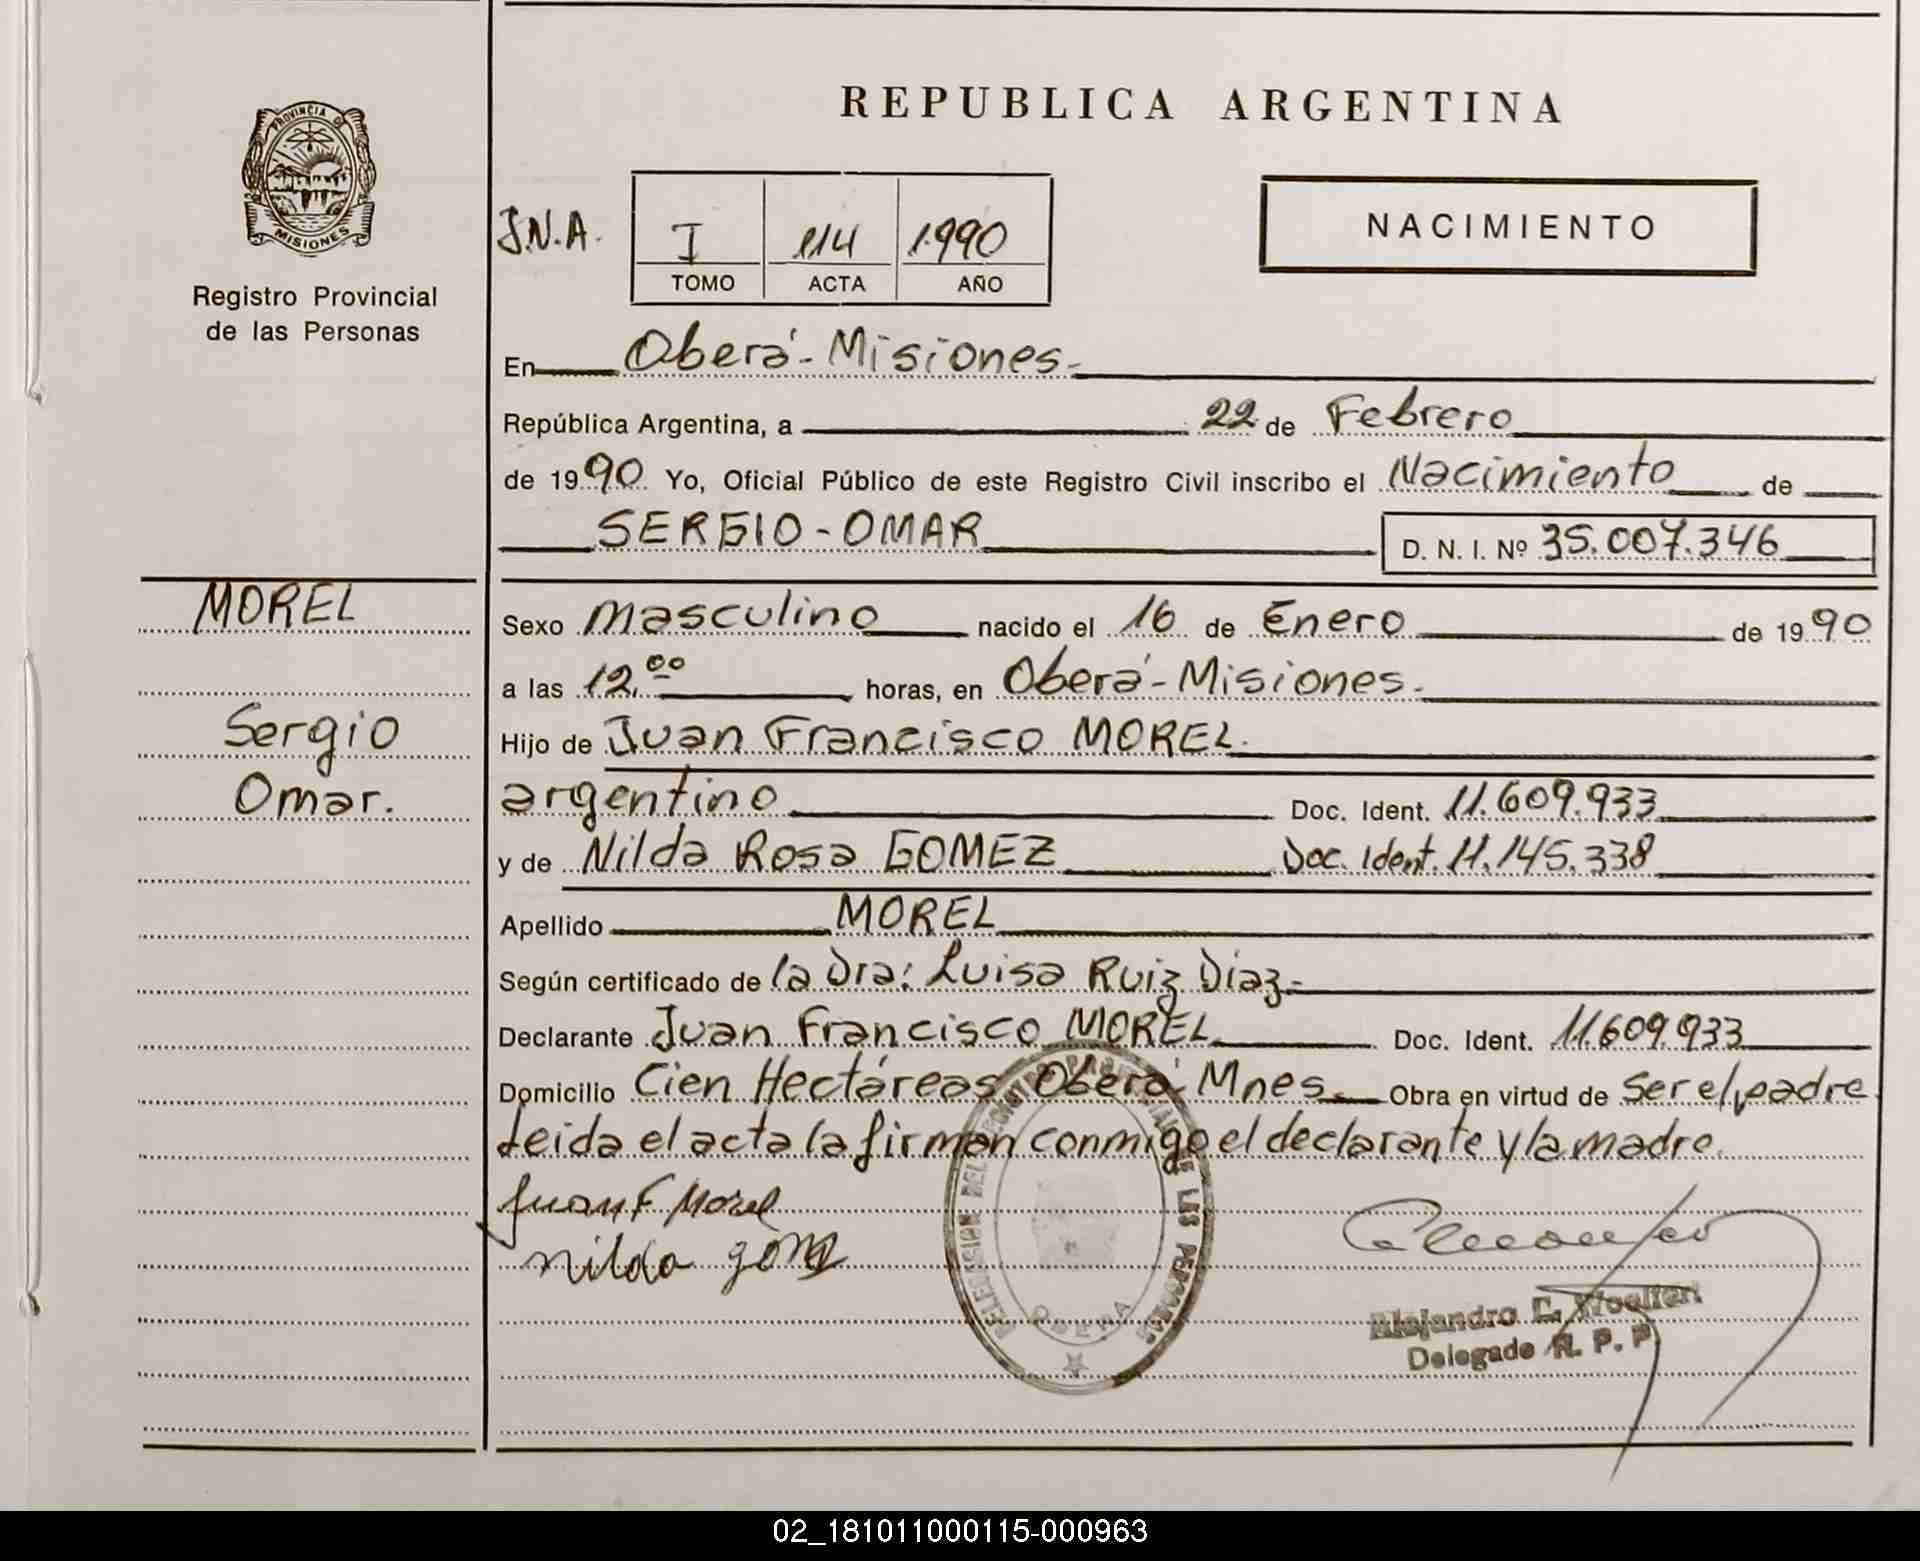 REPUBLICA ARGENTINA
PROVINCIA DE
MISIONES
Registro Provincial
de las Personas
J.N.A. I 114 1.990
TOMO ACTA AÑO
NACIMIENTO
En Oberá - Misiones.-
República Argentina, a 22 de Febrero
de 1990 Yo, Oficial Público de este Registro Civil inscribo el Nacimiento de
SERGIO - OMAR D. N. I. Nº 35.007.346
MOREL
Sergio
Omar.
Sexo Masculino nacido el 16 de Enero de 1990
a las 12.00 horas, en Oberá - Misiones.-
Hijo de Juan Francisco MOREL.
argentino Doc. Ident. 11.609.933
y de Nilda Rosa GOMEZ Doc. Ident. 11.145.338
Apellido MOREL
Según certificado de la Dra: Luisa Ruiz Diaz.-
Declarante Juan Francisco MOREL Doc. Ident. 11.609.933
Domicilio Cien Hectáreas Oberá - Mnes. Obra en virtud de ser el padre
Leida el acta la firman conmigo el declarante y la madre.
Juan F Morel
Nilda Gómez
DELEGACION DEL REGISTRO PROVINCIAL DE LAS PERSONAS
OBERA
Alejandro E.
Delegado R. P. P.
02_181011000115-000963